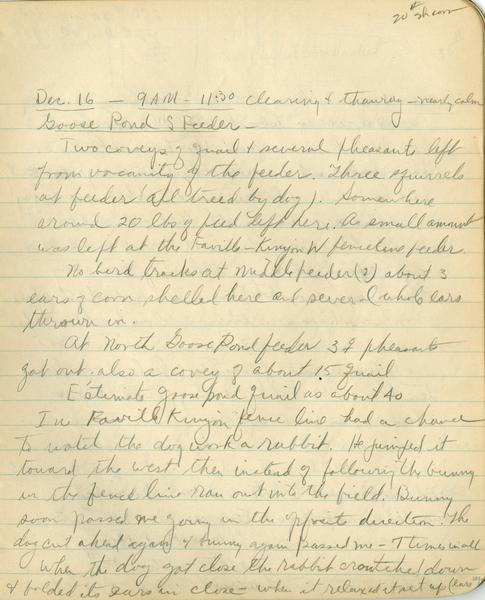 20# sh corn
Dec. 16 — 9 AM - 11:30 clearing & thawing - nearly calm
Goose Pond S Feeder —
Two coveys of quail & several pheasants left
from vacinity of the feeder. Three squirrels
at feeder (all treed by dog). Somewhere
around 20 lbs of feed left here. A small amount
was left at the Faville-Kinyon W fenceline feeder.
No bird tracks at middle feeder (2) about 3
ears of corn shelled here and several whole ears
thrown in.
At North Goose Pond feeder 3 ♀ pheasants
got out. also a covey of about 15 quail
Estimate goose pond quail as about 40
In Faville Kinyon fence line had a chance
to watch the dog work a rabbit. He jumped it
toward the west then instead of following the bunny
in the fence line ran out into the field. Bunny
soon passed me going in the opposite direction. The
dog cut ahead again & bunny again passed me - 7 times in all
When the dog got close the rabbit crouched down
& folded its ears in close - when it relaxed it set up (ears